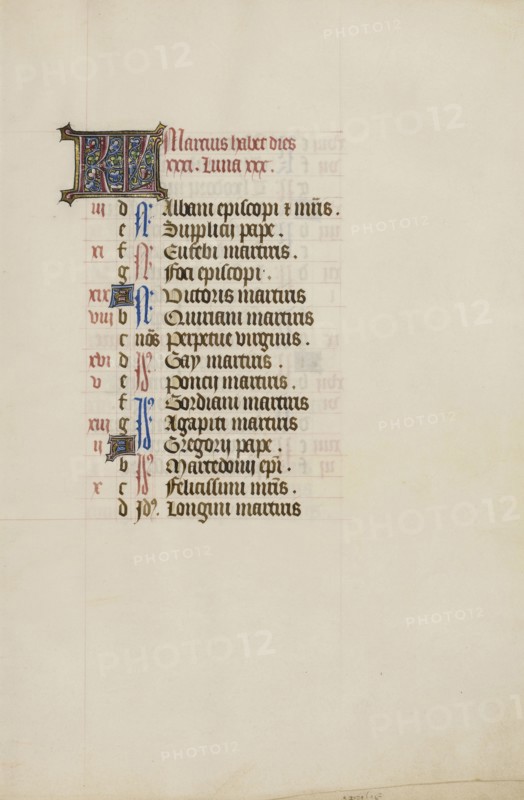 KL Marcius habet dies
xxxi. Luna xxx.
iii d N: Albani episcopi et mris.
e N: Supplicii pape.
xi f N: Eusebi martiris.
g N: Foci episcopi.
xix A N: Victoris martiris
viii b N: Quiriani martiris
c nos Perpetue virginis.
xvi d Id9 Gay martiris.
v e Id9 Poncii martiris.
f Id9 Gordiani martiris
xiii g Id9 Agapiti martiris
ii A Id9 Gregorii pape.
b Id9 Marcedonii epi.
x c Id9 Felicissimi mris.
d Id9. Longini martiris
PHOTO12